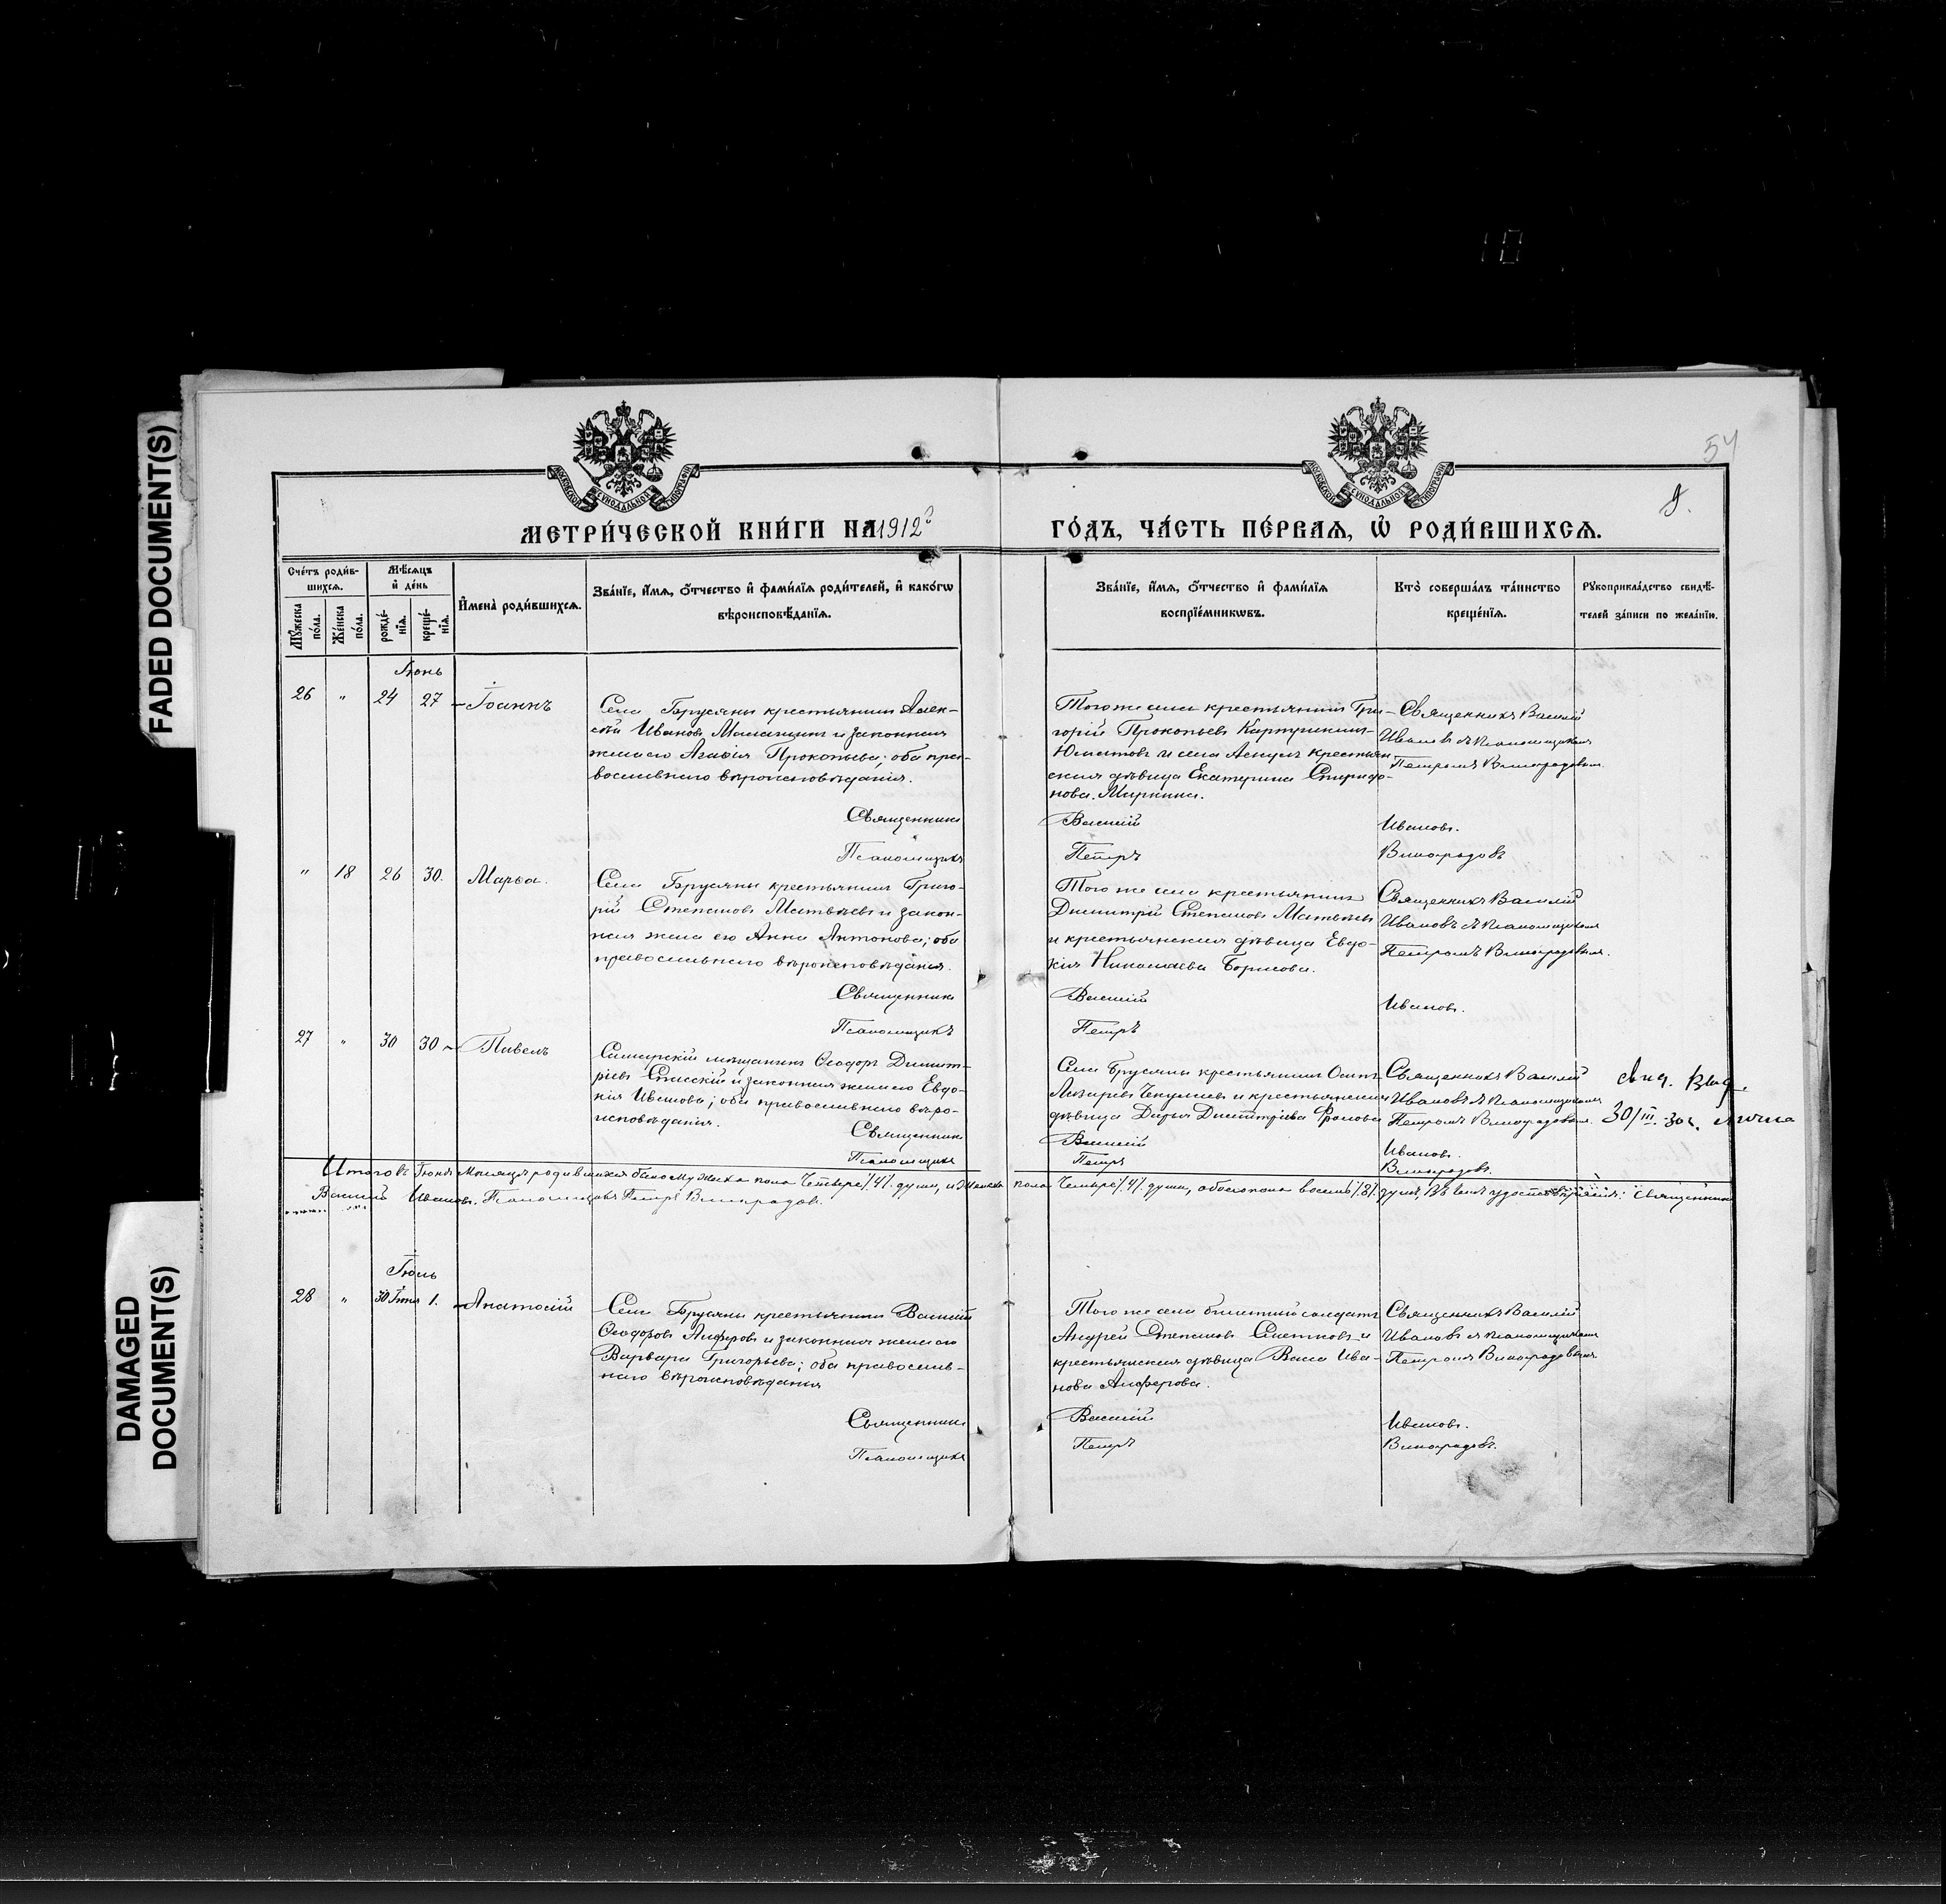 FADED DOCUMENT(S)
DAMAGED
DOCUMENT(S)
10
54
9.
МОСКОВСКОЙ СѴНОДАЛЬНОЙ ТИПОГРАФІИ
МОСКОВСКОЙ СѴНОДАЛЬНОЙ ТИПОГРАФІИ
МЕТРИ́ЧЕСКОЙ КНИ́ГИ НА 1912
ГО́ДЪ, ЧА́СТЬ ПЕ́РВАЯ, Ѡ҆ РОДИ́ВШИХСЯ.
Сче́тъ роди́в-
шихся.
Мѣ́сяцъ
и҆ де́нь
Мꙋ́жеска
по́ла.
Же́нска
по́ла.
рожде́-
нїя.
креще́-
нїя.
И҆мена̀ роди́вшихся.
Зва́нїе, и҆́мя, ѻ҆́тчество и҆ фами́лїя роди́телей, и҆ како́гѡ
вѣроисповѣ́данїя.
Зва́нїе, и҆́мя, ѻ҆́тчество и҆ фами́лїя
воспрїе́мникѡвъ.
Кто̀ соверша́лъ та́инство
креще́нїя.
Рꙋкоприкла́дство свидѣ́-
телей за́писи по жела́нїю.
Іюнь
26 " 24 27 Іоаннъ
Села Брусяны крестьянинъ Алек-
сѣй Ивановъ и законная
жена его Агафія Прокопьева; оба пра-
вославнаго вѣроисповѣданія.
Священникъ
Псаломщикъ
Того же села крестьянинъ Гри-
горій Прокопьевъ
и села Аскулъ крестьян
ская дѣвица Екатерина Спиридо-
нова Миркина.
Василій
Петръ
Священникъ Василій
Ивановъ съ псаломщикомъ
Петромъ Виноградовымъ.
Ивановъ.
Виноградовъ
" 18 26 30. Марѳа.
Села Брусяны крестьянинъ Григо-
рій Степановъ Матвѣевъ и закон-
ная жена его Анна Антонова; оба
православнаго вѣроисповѣданія.
Священникъ
Псаломщикъ
Того же села крестьянинъ
Димитрій Степановъ Матвѣевъ
и крестьянская дѣвица Евдо-
кія Николаева Борисова.
Василій
Петръ
Священникъ Василій
Ивановъ съ псаломщикомъ
Петромъ Виноградовымъ.
Ивановъ.
27 " 30 30 Павелъ
Самарскій мѣщанинъ Ѳеодоръ Димит-
ріевъ Спасскій и законная жена его Евдо-
кія Иванова; оба православнаго вѣро-
исповѣданія.
Священникъ
Псаломщикъ
Села Брусяны крестьянинъ Осипъ
Лазаревъ и крестьянская
дѣвица Дарья Димитріева Фролова
Василій
Петръ
Священникъ Василій
Ивановъ съ псаломщикомъ
Петромъ Виноградовымъ.
Ивановъ.
Виноградовъ.
30/III
Итого въ Іюнѣ мѣсяцѣ родившихся было мужска пола четыре /4/ души, и женска пола четыре /4/ души, обоего пола восемь /8/ душъ, въ чемъ удостовѣряемъ: Священникъ
Василій Ивановъ. Псаломщикъ Петръ Виноградовъ.
Іюль
28 " 30 Іюня 1. Анатолій
Села Брусяны крестьянинъ Василій
Ѳеодоровъ Анферовъ и законная жена его
Варвара Григорьева; оба православ-
наго вѣроисповѣданія
Священникъ
Псаломщикъ
Того же села билетный солдатъ
Андрей Степановъ и
крестьянская дѣвица Васса Ива-
нова Анферова.
Василій
Петръ
Священникъ Василій
Ивановъ съ псаломщикомъ
Петромъ Виноградовымъ
Ивановъ.
Виноградовъ.